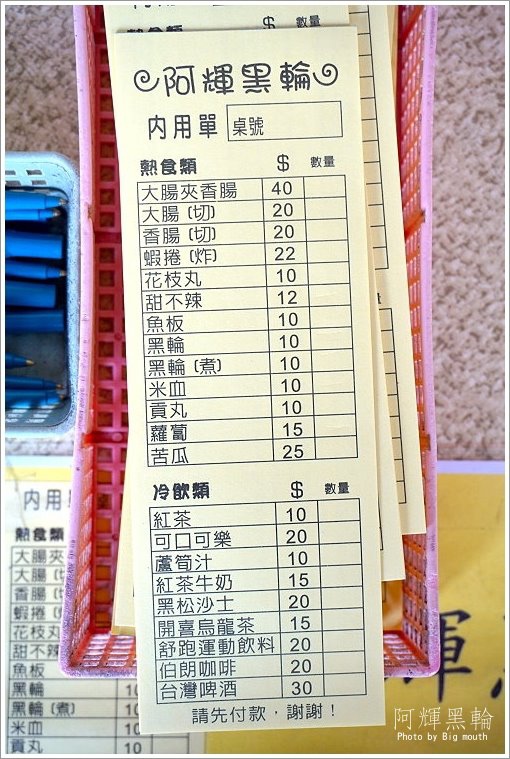 阿輝黑輪
內用單 桌號
熱食類 $ 數量
大腸夾香腸 40
大腸(切) 20
香腸(切) 20
蝦捲(炸) 22
花枝丸 10
甜不辣 12
魚板 10
黑輪 10
黑輪(煮) 10
米血 10
貢丸 10
蘿蔔 15
苦瓜 25
冷飲類 $ 數量
紅茶 10
可口可樂 20
蘆筍汁 10
紅茶牛奶 15
黑松沙士 20
開喜烏龍茶 15
舒跑運動飲料 20
伯朗咖啡 20
台灣啤酒 30
請先付款,謝謝!
內用
熱食類
大腸夾
大腸(切
香腸(切
蝦捲(
花枝丸
甜不辣
魚板
黑輪 10
黑輪(煮) 10
米血 10
貢丸 10
阿輝黑輪
Photo by Big mouth